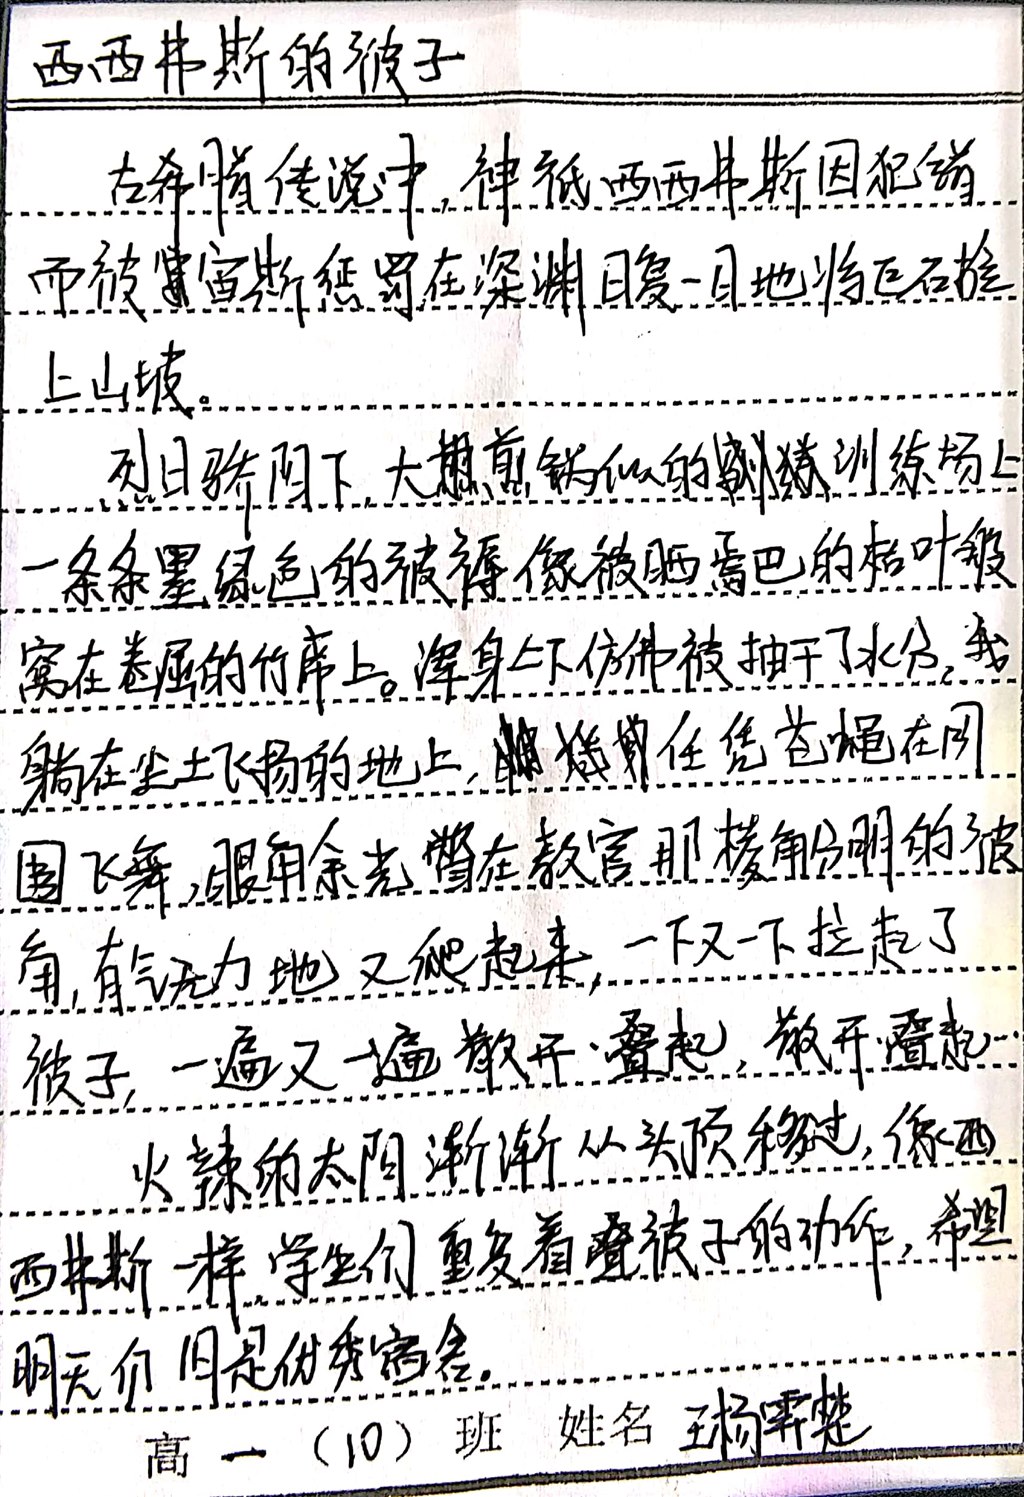 西西弗斯的被子
古希腊传说中,神祗西西弗斯因犯错
而被宙斯惩罚在深渊日复一日地将巨石捡
上山坡。
烈日骄阳下,大煎锅似的训练场上
一条条墨绿色的被褥像被晒蔫巴的枯叶般
窝在卷屈的竹席上。浑身上下仿佛被抽干了水分,我
躺在尘土飞扬的地上,任凭苍蝇在周
围飞舞,眼角余光瞥在教官那棱角分明的被
角,有气无力地又爬起来,一下又一下拉起了
被子,一遍又一遍散开·叠起,散开·叠起…
火辣的太阳渐渐从头顶移过,像西
西弗斯一样,学生们重复着叠被子的动作,希望
明天仍旧是优秀宿舍。
高一(10)班 姓名 王杨霁楚